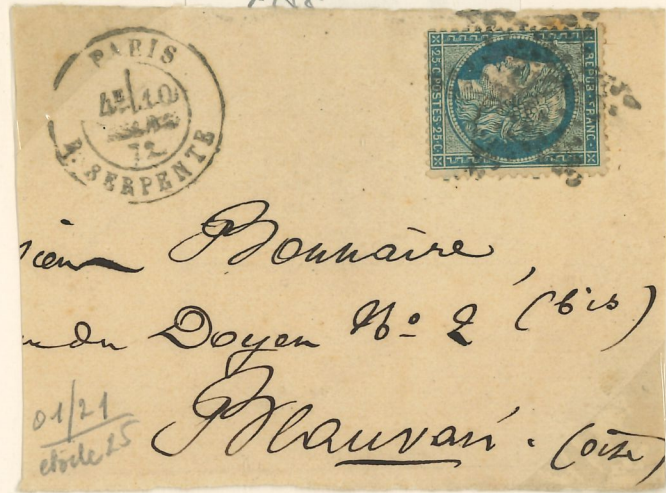 PARIS
4E 10
72
R. SERPENTE
25 C POSTES 25 C
REPUB. FRANC.
Bonnaire,
du Doyen No 2 (bis)
Beauvais. (Oise)
01/21
étoile 25